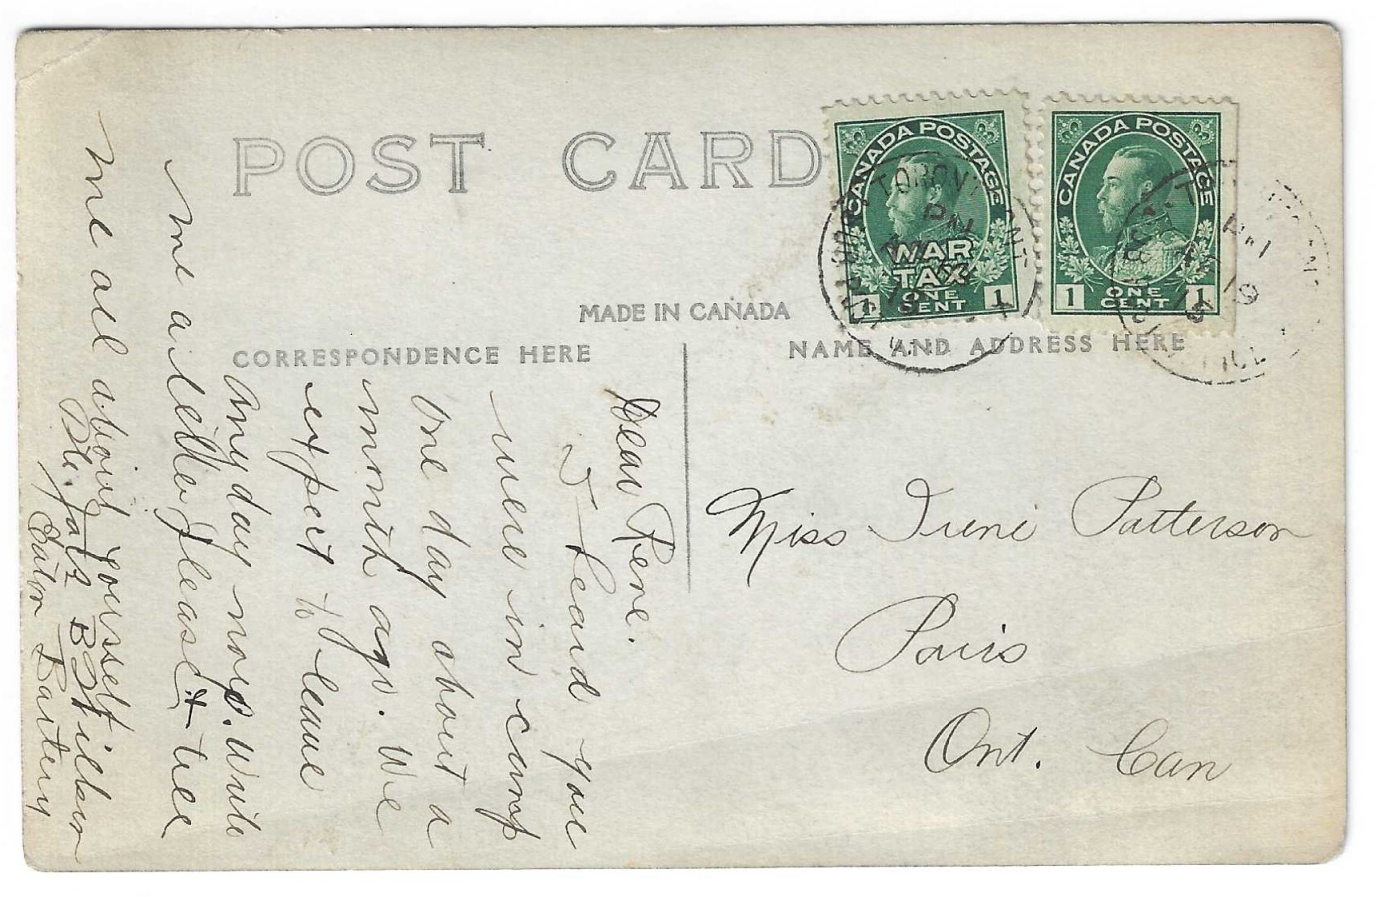 POST CARD
CANADA POSTAGE
WAR
TAX
1 ONE CENT 1
CANADA POSTAGE
1 ONE CENT 1
TORONTO
PM
MADE IN CANADA
CORRESPONDENCE HERE
NAME AND ADDRESS HERE
Miss Irene Patterson
Paris
Ont. Can
Dear Rene.
I heard you
were in camp
one day about a
month ago. We
expect to leave
any day now. Write
me a letter please & tell
me all about yourself
Eaton Battery